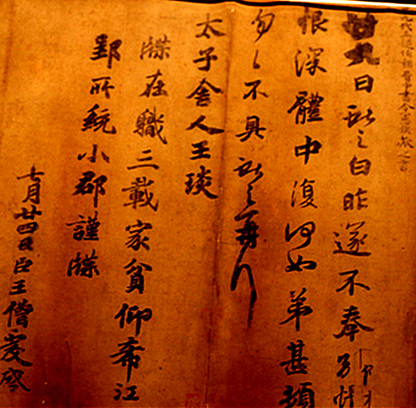 廿九日獻之白昨遂不奉別悵
恨深體中復何如弟甚頓
匆匆不具獻之再拜
太子舍人王琰
牒在職三載家貧仰希江
郢所統小郡謹牒
七月廿四日臣王僧虔啓